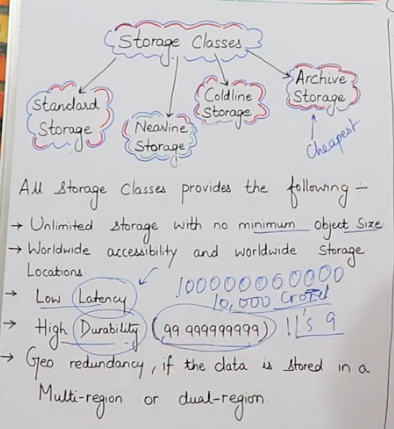 Storage Classes
Standard
Storage
Nearline
Storage
Coldline
Storage
Archive
Storage
cheapest
All Storage Classes provides the following –
→ Unlimited storage with no minimum object size
→ Worldwide accessibility and worldwide Storage
Locations.
100000000000
→ Low Latency
10,000 crore
→ High Durability (99.999999999) 11's 9
→ Geo redundancy, if the data is stored in a
Multi-region or dual-region